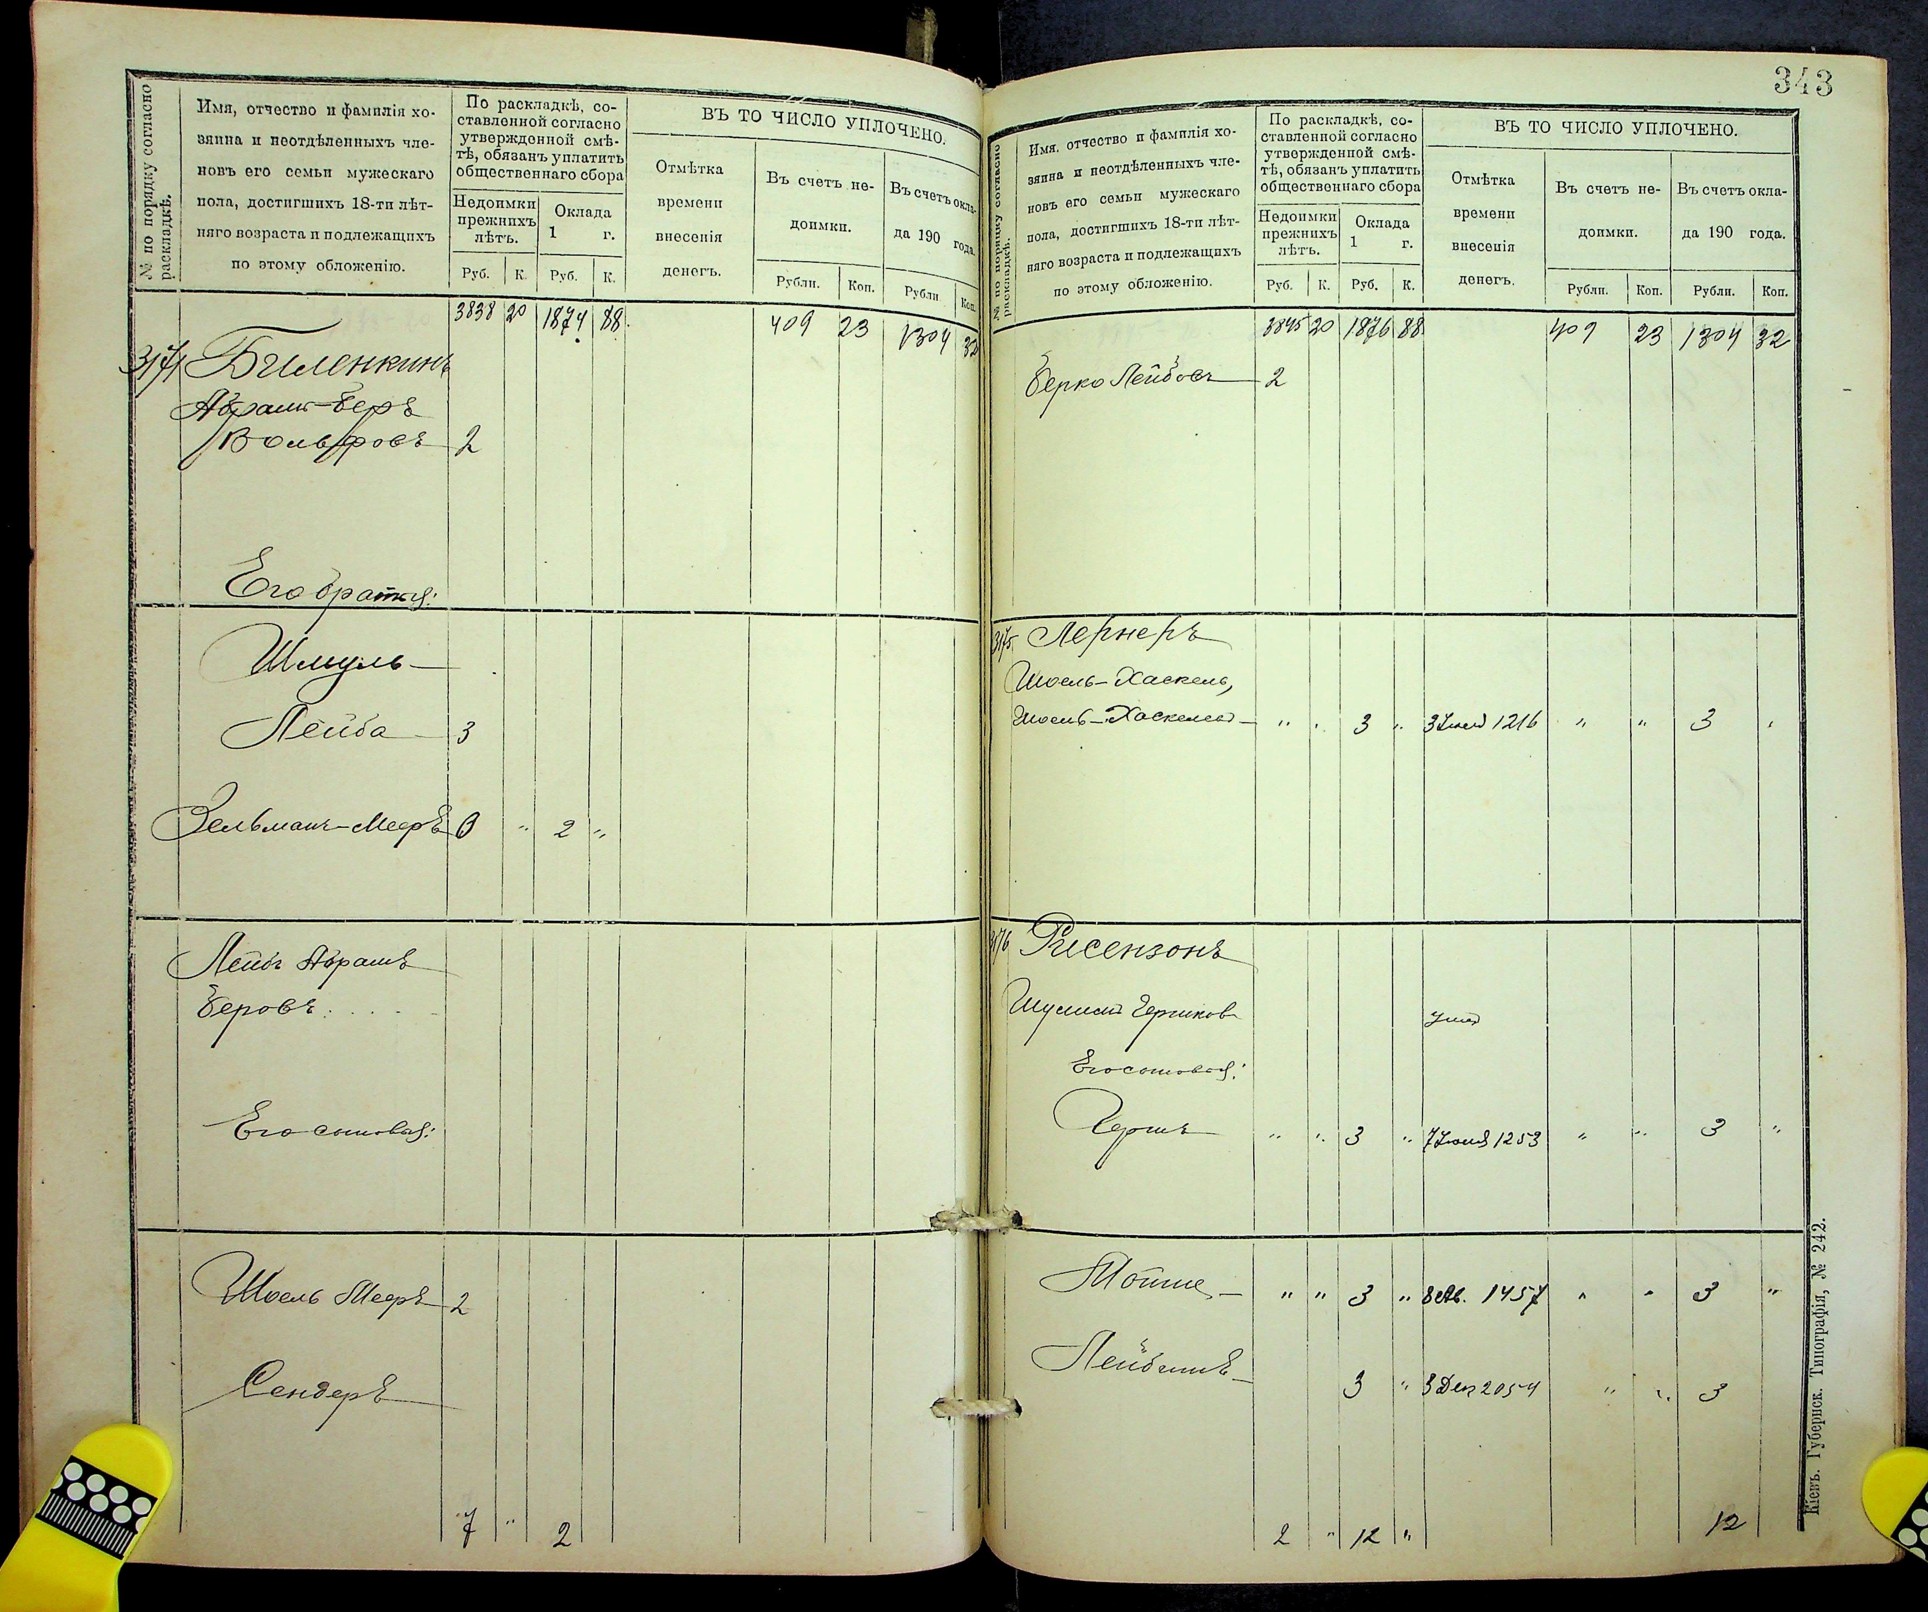 343
№ по порядку согласно
раскладкѣ.
Имя, отчество и фамилія хо-
зяина и неотдѣленныхъ чле-
новъ его семьи мужескаго
пола, достигшихъ 18-ти лѣт-
няго возраста и подлежащихъ
по этому обложенію.
По раскладкѣ, со-
ставленной согласно
утвержденной смѣ-
тѣ, обязанъ уплатить
общественнаго сбора
Недоимки
прежнихъ
лѣтъ.
Оклада
1 г.
Руб. К. Руб. К.
ВЪ ТО ЧИСЛО УПЛОЧЕНО.
Отмѣтка
времени
внесенія
денегъ.
Въ счетъ не-
доимки.
Въ счетъ окла-
да 190 года.
Рубли. Коп. Рубли Коп.
3838 20 1874 88 409 23 1304 32
3174 Биленкинъ
Абрамъ-Беръ
Вольфовъ 2
Его братья:
Шмуль
Лейба 3
Зельманъ-Мееръ " 2 "
Лейбъ Абрамъ
Беровъ
Его сыновья:
Шоель Мееръ 2
Сендеръ
7 " 2
№ по порядку согласно
раскладкѣ.
Имя, отчество и фамилія хо-
зяина и неотдѣленныхъ чле-
новъ его семьи мужескаго
пола, достигшихъ 18-ти лѣт-
няго возраста и подлежащихъ
по этому обложенію.
По раскладкѣ, со-
ставленной согласно
утвержденной смѣ-
тѣ, обязанъ уплатить
общественнаго сбора
Недоимки
прежнихъ
лѣтъ.
Оклада
1 г.
Руб. К. Руб. К.
ВЪ ТО ЧИСЛО УПЛОЧЕНО.
Отмѣтка
времени
внесенія
денегъ.
Въ счетъ не-
доимки.
Въ счетъ окла-
да 190 года.
Рубли. Коп. Рубли. Коп.
3845 20 1876 88 409 23 1304 32
Берко Лейбовъ 2
3175 Лернеръ
Шоель-Хаскель,
Шоель-Хаскелев " " 3 " 3 1216 " " 3
3176 Рисензонъ
Гершков
Его сыновья:
Гершъ " " 3 " 7 Іюня 1253 " " 3 "
Мойше " " 3 " 8 Ав. 1457 " " 3 "
Лейбишъ 3 " 3 Дек 2054 " " 3
2 " 12 " 12
Кіевъ. Губернск. Типографія, № 242.